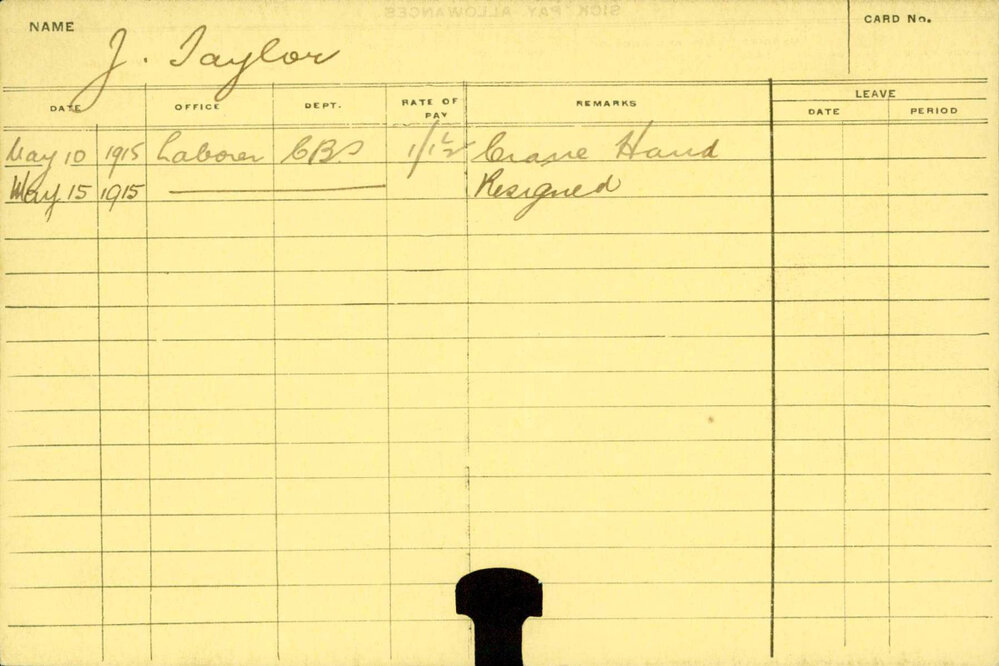 SICK PAY ALLOWANCES.
NAME J. Taylor CARD No.
DATE OFFICE DEPT. RATE OF PAY REMARKS LEAVE
DATE PERIOD
May 10 1915 Laborer 1/1½ Crane Hand
May 15 1915 Resigned